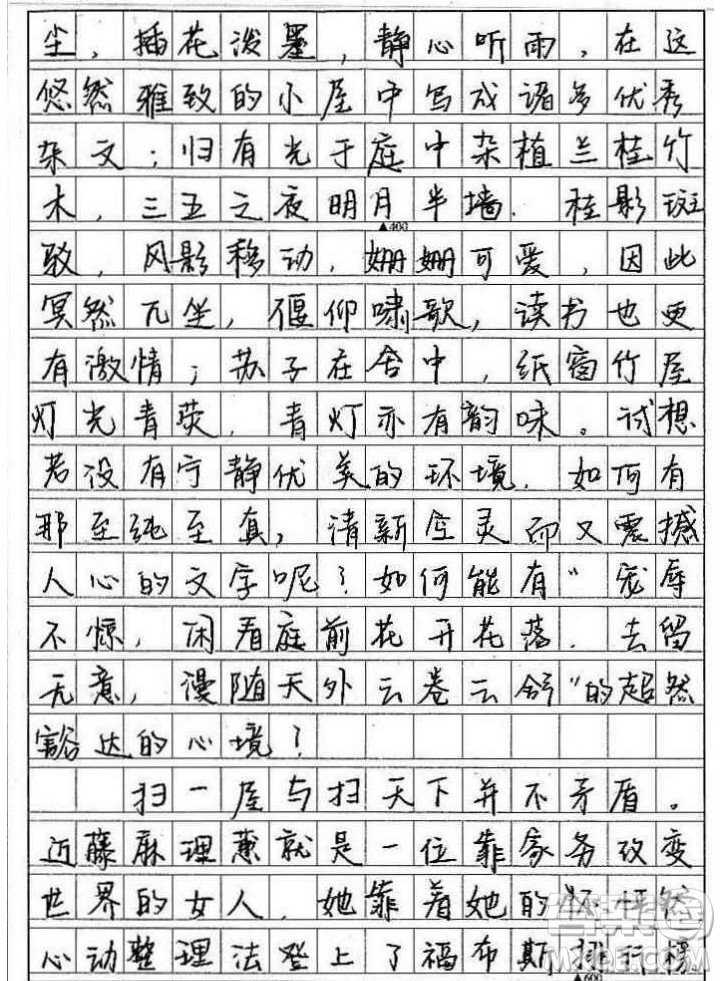 尘，插花泼墨，静心听雨，在这
悠然雅致的小屋中写成诸多优秀
杂文；归有光于庭中杂植兰桂竹
木，三五之夜明月半墙．桂影斑
▲400
驳，风影移动，姗姗可爱，因此
冥然兀坐，偃仰啸歌，读书也更
有激情；苏子在舍中，纸窗竹屋
灯光青荧．青灯亦有韵味。试想
若没有宁静优美的环境．如何有
那至纯至真，清新空灵而又震撼
人心的文字呢？如何能有“宠辱
不惊，闲看庭前花开花落．去留
无意，漫随天外云卷云舒”的超然
豁达的心境？
扫一屋与扫天下并不矛盾。
近藤麻理惠就是一位靠家务改变
世界的女人．她靠着她的怦然
心动整理法登上了福布斯排行榜
▲600